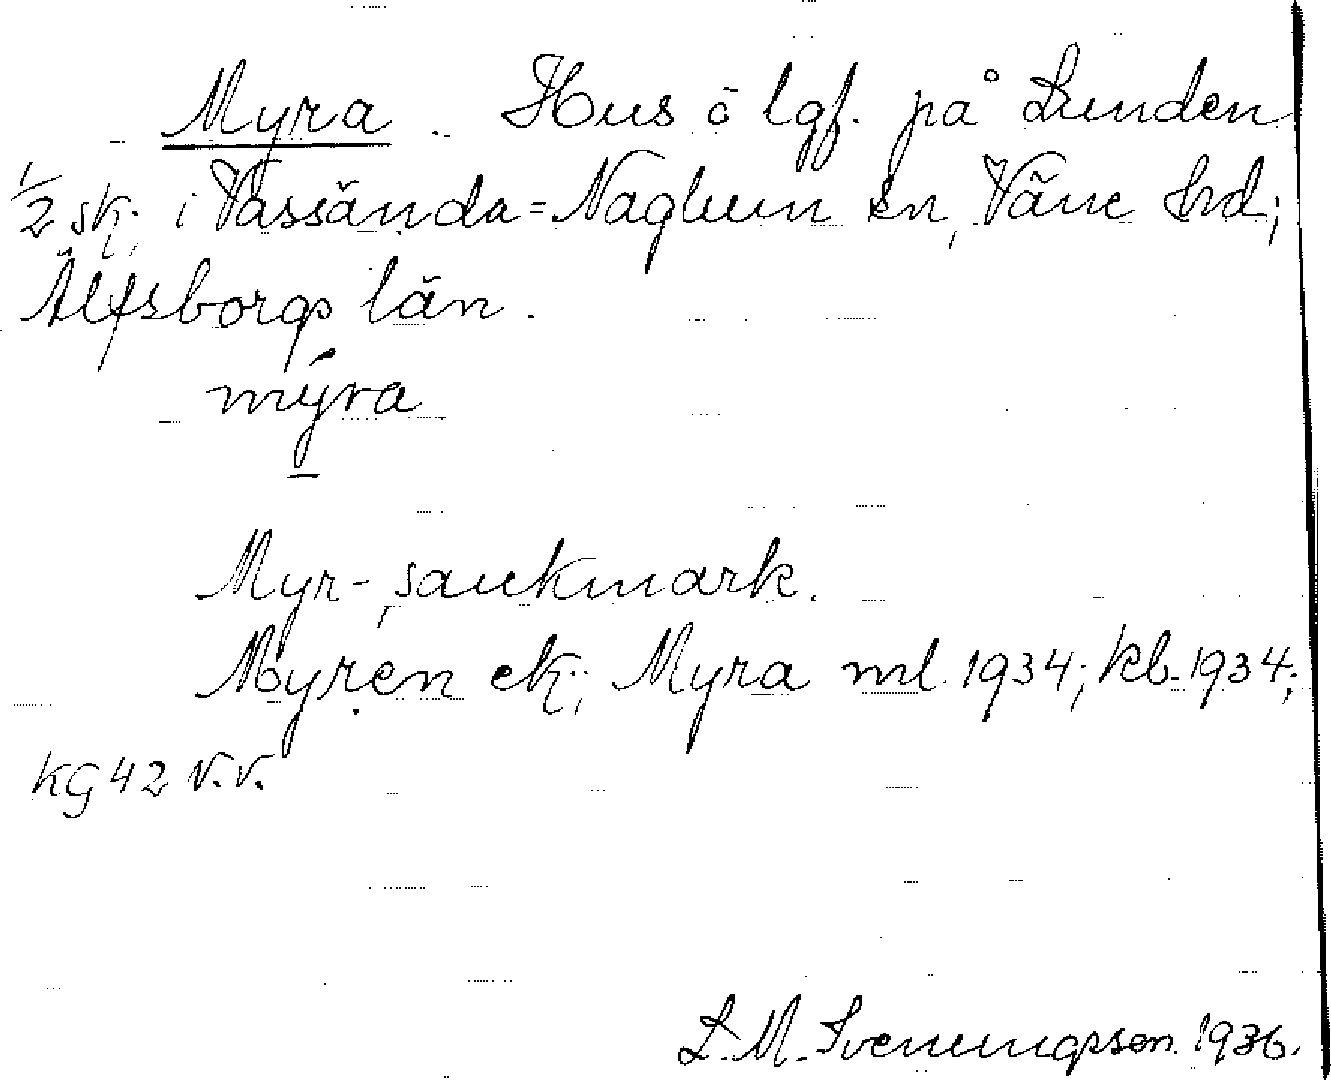 Myra. Hus ö lgf. på Lunden
1/2 sk. i Vassända=Naglum sn, Väne hrd;
Älfsborgs län.
mýra
Myr-, sankmark.
Myren ek; Myra ml. 1934; kb. 1934;
KG 42 N.V.
L. M. Svenungsson. 1936.